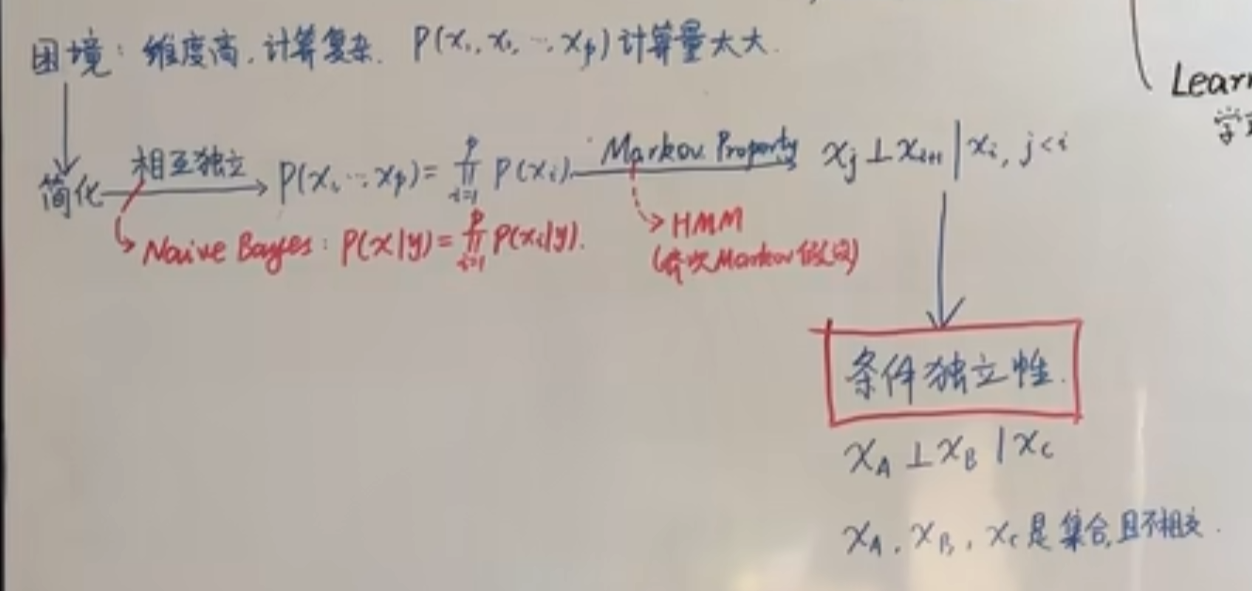 困境：维度高，计算复杂. P(x₁, x₂, ⋯, xₚ) 计算量太大.
Learn
简化 相互独立 → P(x₁, ⋯ xₚ) = ∏ᵢ₌₁ᵖ P(xᵢ). Markov Property xⱼ ⊥ xᵢ₊₁ | xᵢ, j<i
↳ Naive Bayes : P(x|y) = ∏ᵢ₌₁ᵖ P(xᵢ|y). → HMM
(齐次Markov假设)
条件独立性.
x_A ⊥ x_B | x_C
x_A, x_B, x_C 是集合,且不相交.